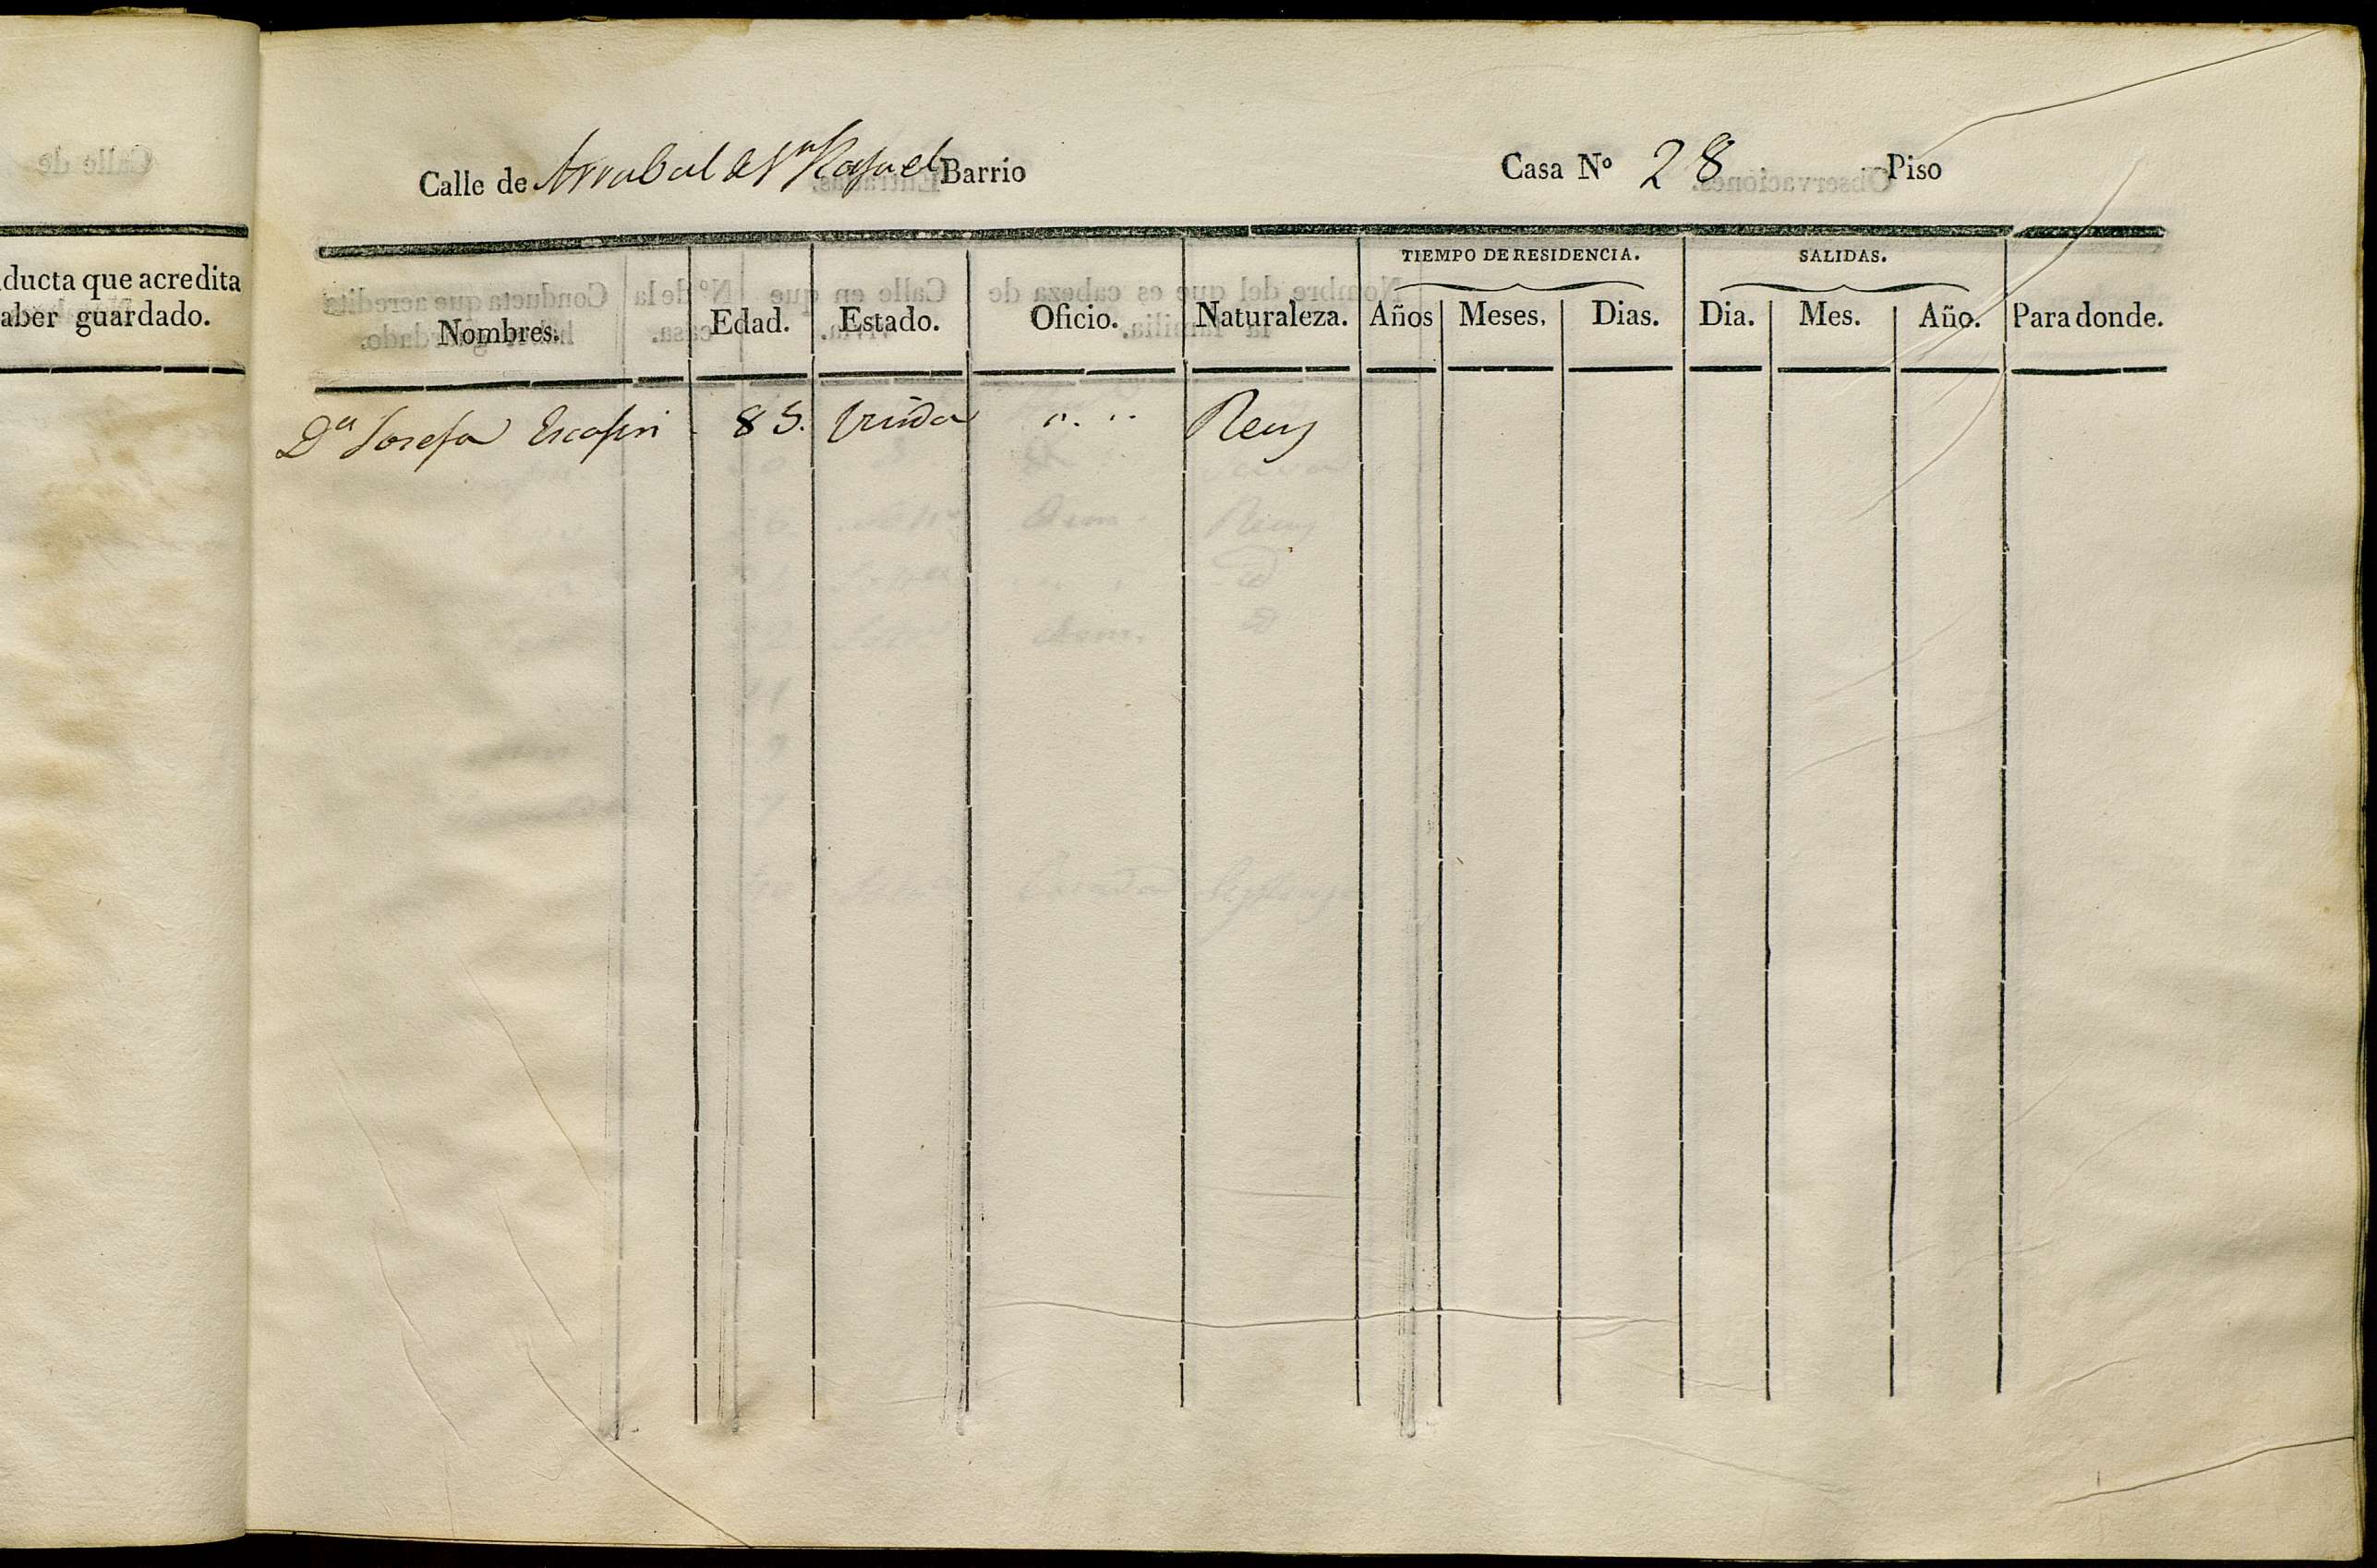 Calle de Arrabal de Sn Rafael Barrio Casa Nº 28 Piso
ducta que acredita
aber guardado.
TIEMPO DE RESIDENCIA. SALIDAS.
Nombres. Edad. Estado. Oficio. Naturaleza. Años Meses. Dias. Dia. Mes. Año. Para donde.
Da Josefa 85. Viuda " " Reus